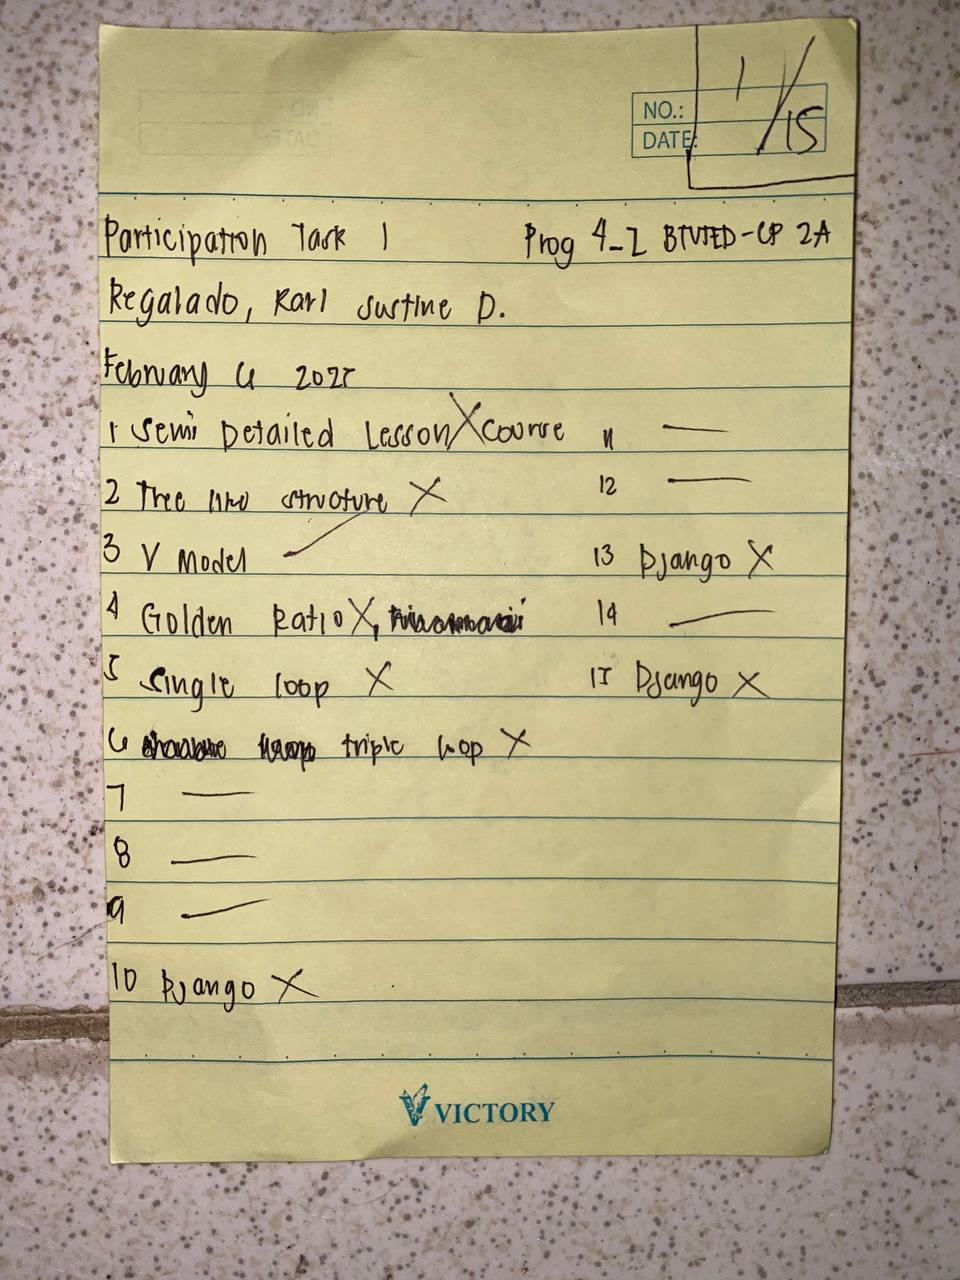 NO.:
DATE:
1/15
Participation Task 1 Prog 4-Z BTVTED-CP 2A
Regalado, Karl Justine D.
February 6 2025
1 Semi Detailed Lesson X course
2 Tree structure X
3 V Model
4 Golden Ratio X,
5 Single loop X
6 triple loop X
7 —
8 —
9 —
10 Django X
11 —
12 —
13 Django X
14 —
15 Django X
VICTORY